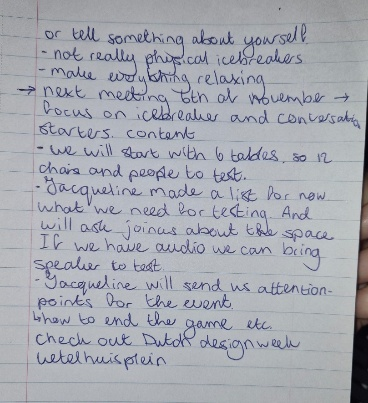 or tell something about yourself
- not really physical icebreakers
- make everything relaxing
→ next meeting 6th of november →
focus on icebreaker and conversation
starters. content
- we will start with 6 tables, so 12
chairs and people to test.
- Jacqueline made a list for now
what we need for testing. And
will ask joinus about the space
If we have audio we can bring
speaker to test.
- Jacqueline will send us attention-
points for the event.
↳ how to end the game etc.
check out Dutch designweek
ketelhuisplein